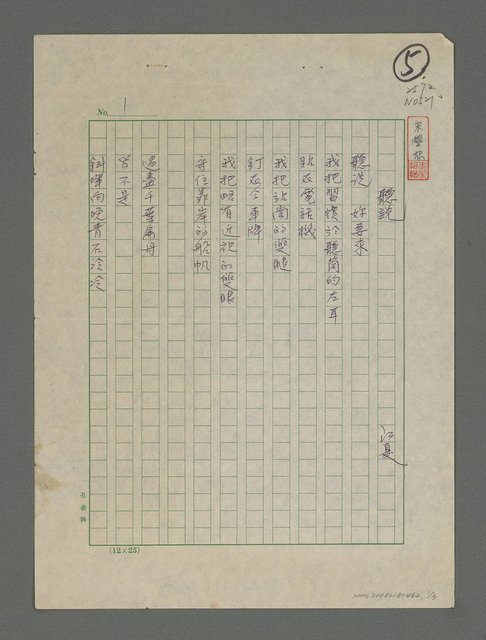 5
2572
No527
No. 1
朱學恕
聽說
江夏
聽說 妳要來
我把習慣於聽筒的左耳
貼在電話機
我把站崗的雙腿
釘在公車牌
我把略有近視的雙眼
守住靠岸的船帆
過盡千葉扁舟
皆不是
斜暉向晚青石冷冷
孔雀牌
(12×25)
NMTL20080180462, 1/3